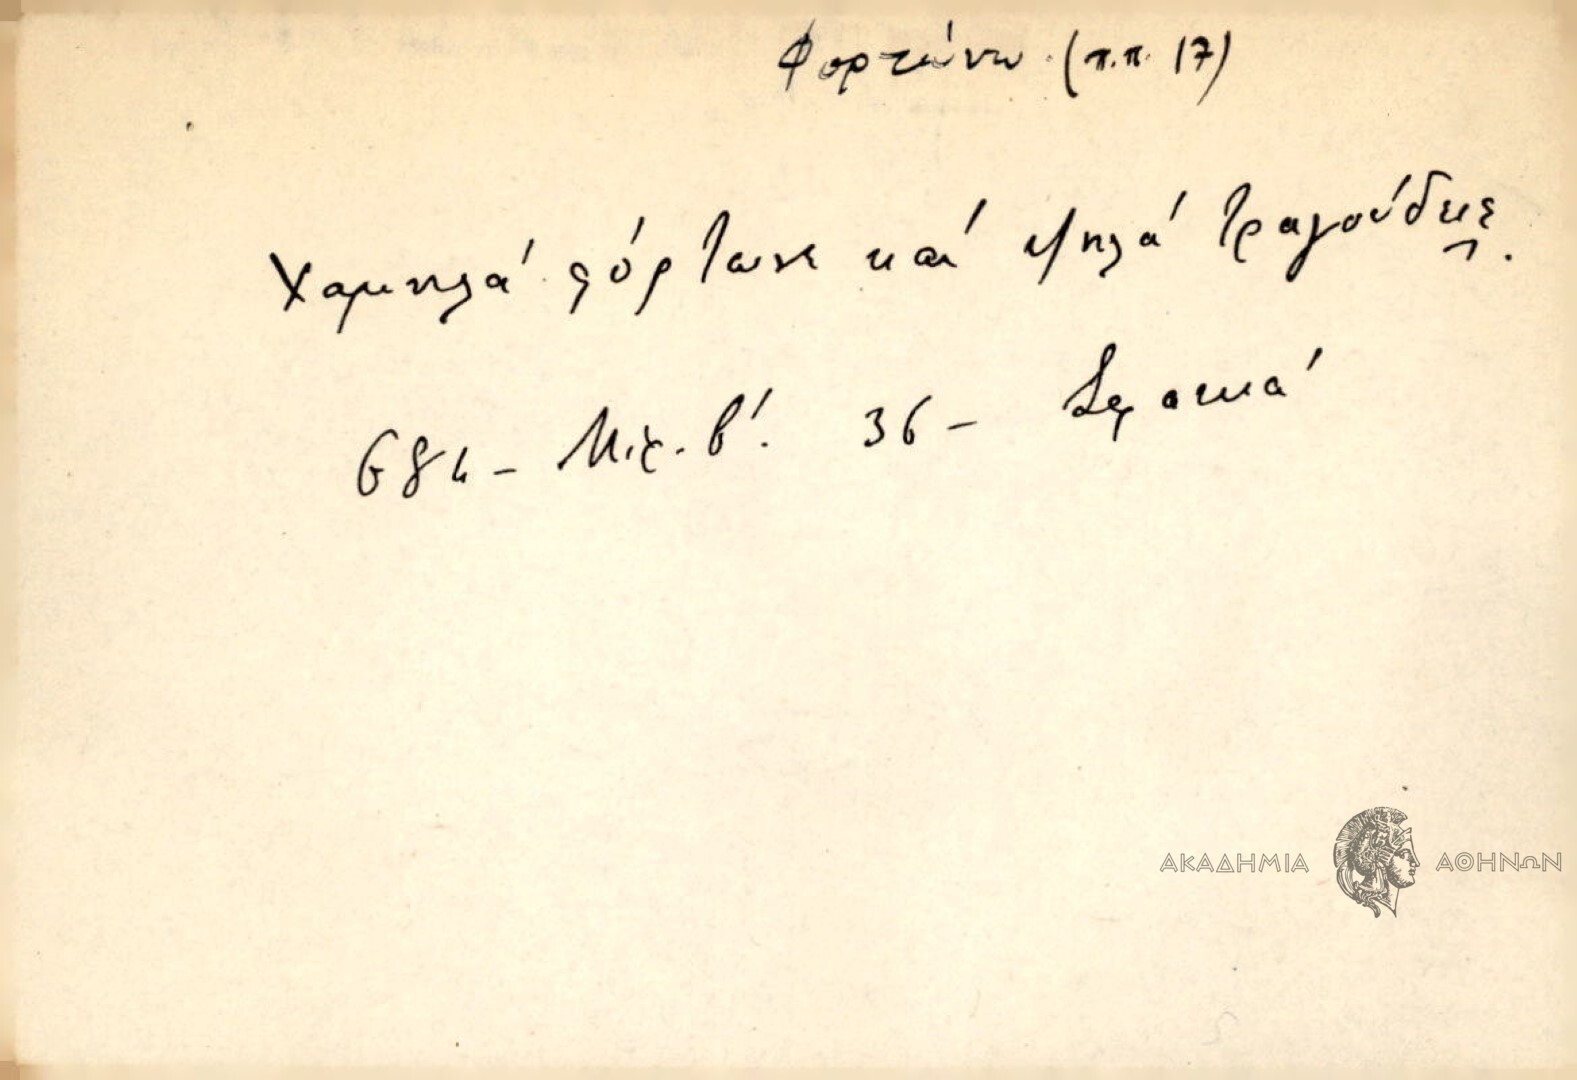 Φορτώνω (π.π. 17)
Χαμηλά φόρτωνε καί ψηλά τραγούδιε.
684 - Μιχ. β'. 36 -
ΑΚΑΔΗΜΙΑ ΑΘΗΝΩΝ